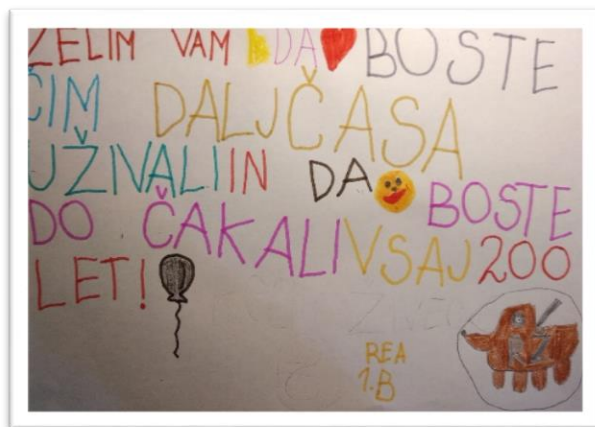 ŽELIM VAM DA BOSTE
ČIM DALJČASA
UŽIVALI IN DA BOSTE
DO ČAKALI VSAJ 200
LET!
REA
1.B